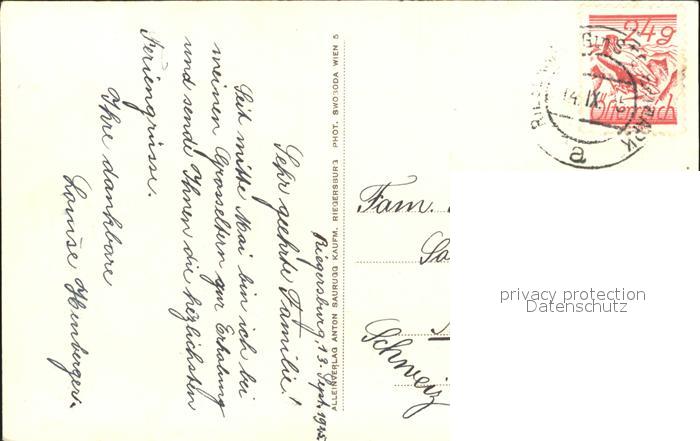 Riegersburg, 13. Sept. 1925
Sehr geehrte Familie!
Seit mitte Mai bin ich bei
meinen Grosseltern zur Erholung
und sende Ihnen die herzlichsten
Feriengrüsse.
Ihre dankbare
Louise
ALLEINVERLAG ANTON SAURUGG KAUFM. RIEGERSBURG PHOT. SWOBODA WIEN 5
24g
Österreich
14. IX.
a
Fam.
Schweiz
privacy protection
Datenschutz